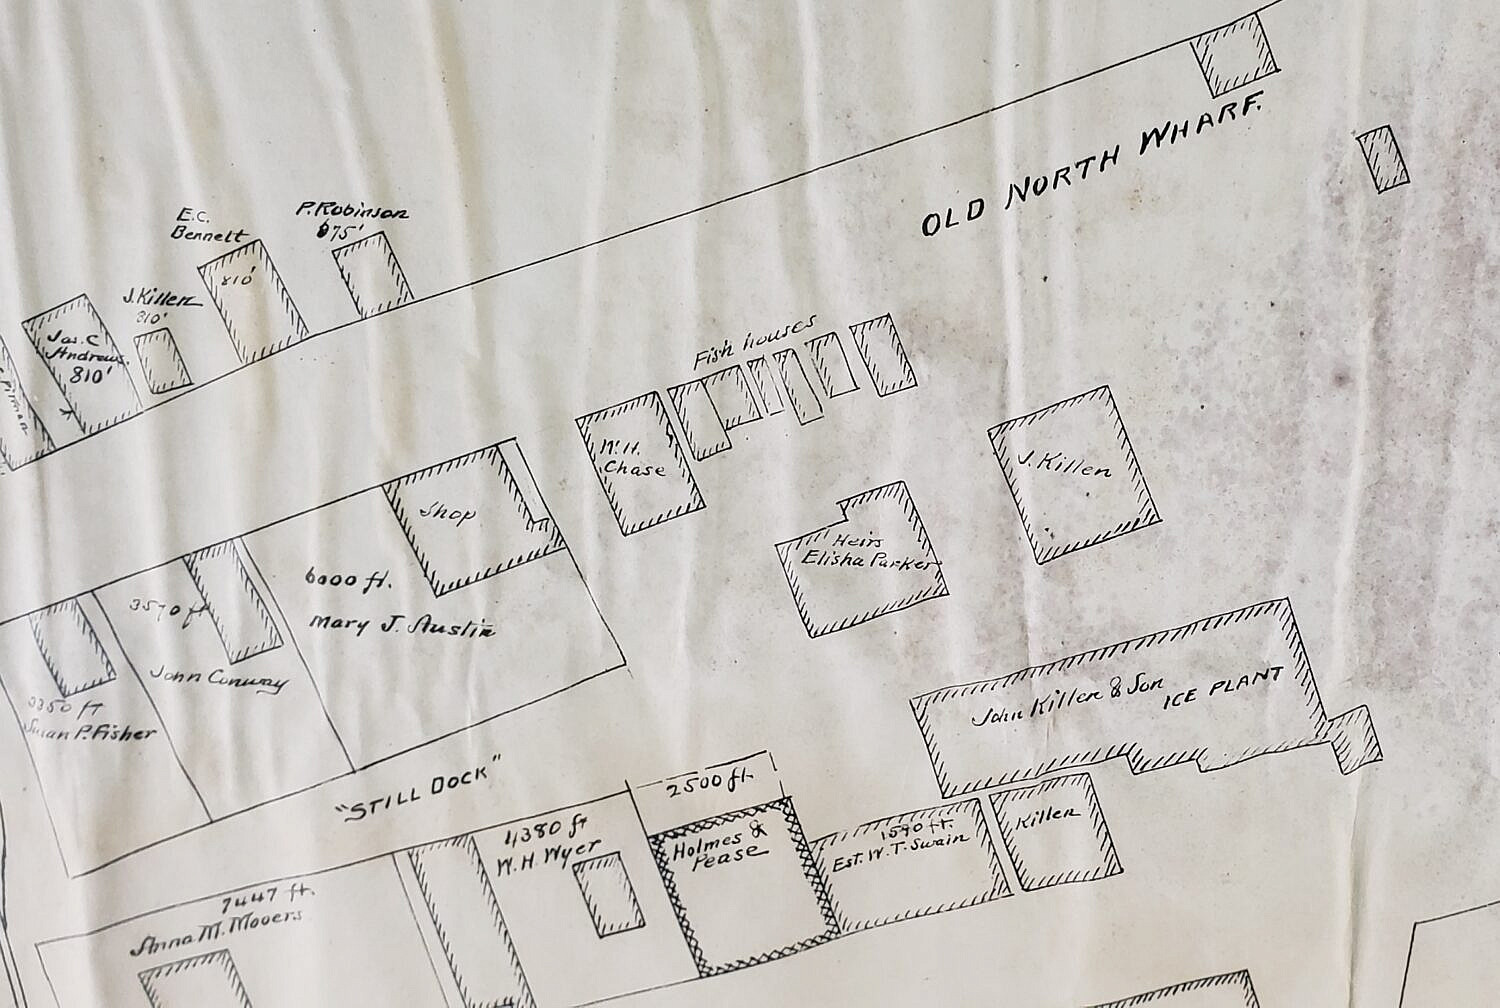 OLD NORTH WHARF.
P. Robinson
875'
E.C.
Bennett
810'
J. Killen
810'
Jas. C
Andrews.
810'
Pitman
Fish houses
W. H.
Chase
J. Killen
Shop
Heirs
Elisha Parker
6000 ft.
Mary J. Austin
3570 ft
John Conway
3350 ft
Susan P. Fisher
John Killen & Son
ICE PLANT
"STILL DOCK"
2500 ft.
4380 ft
W. H. Wyer
Holmes &
Pease
1590 ft.
Est. W. T. Swain
Killen
7447 ft.
Anna M. Mooers